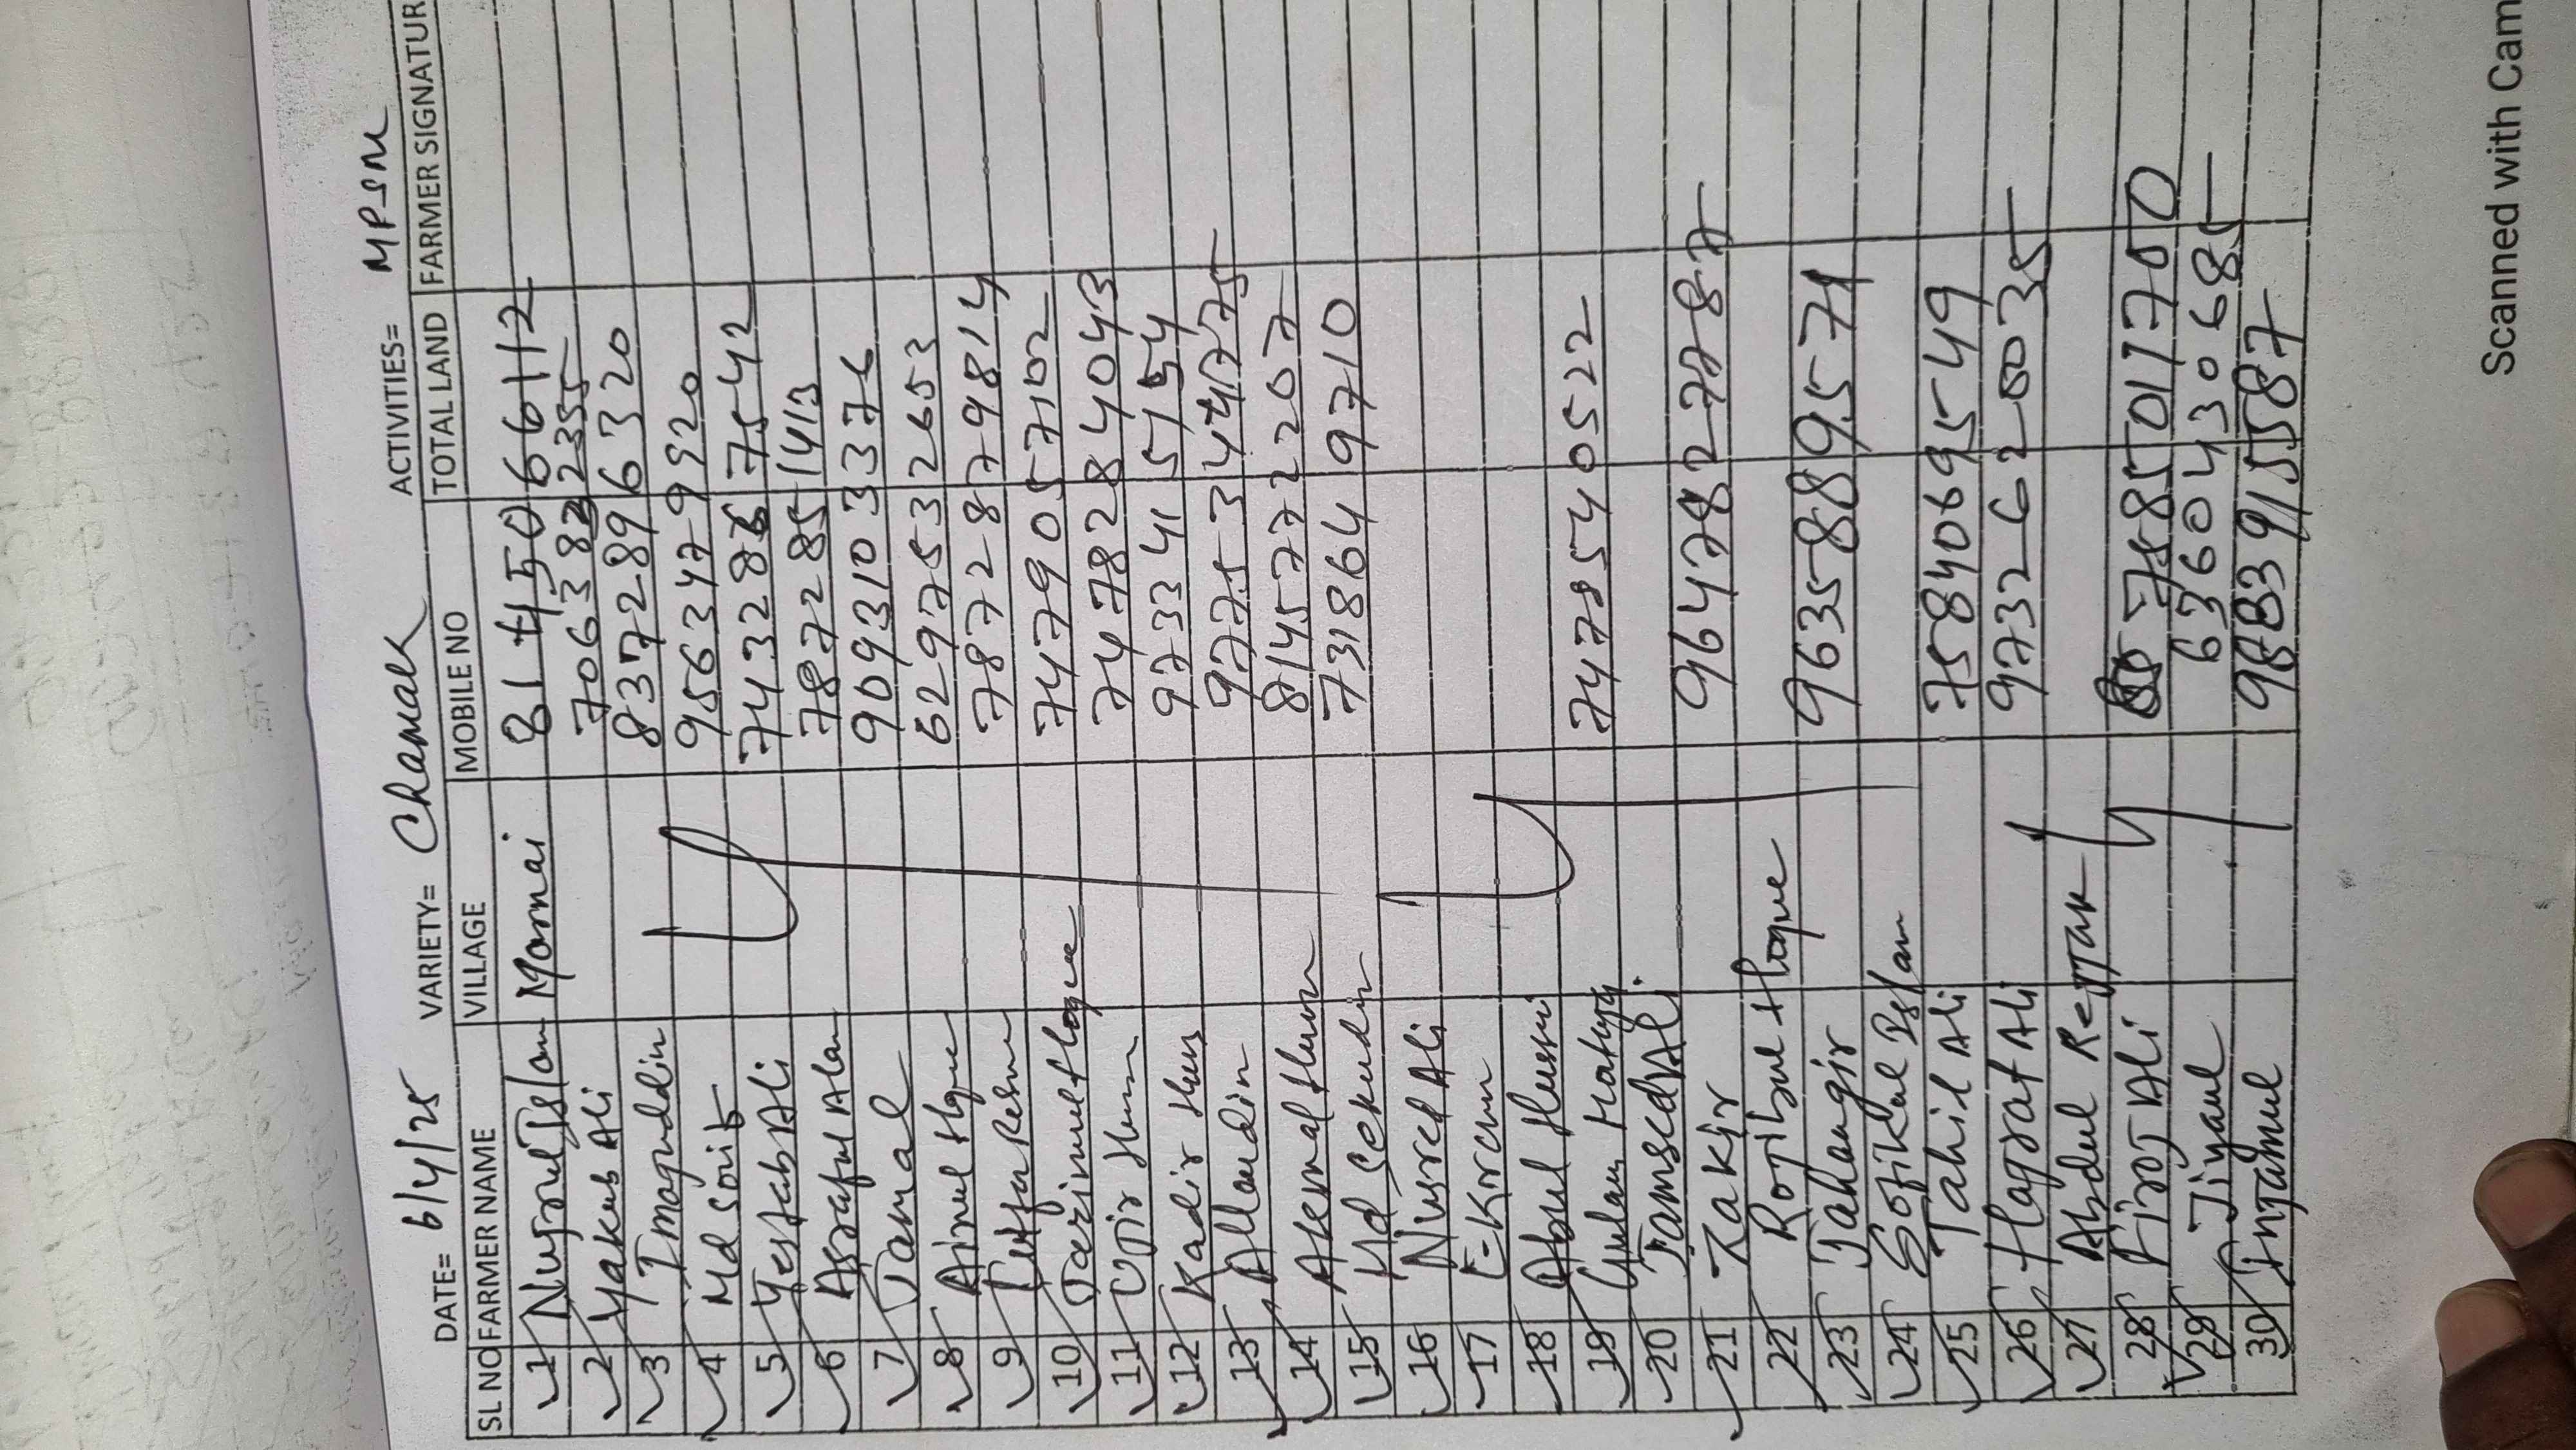 DATE= 6/4/25 VARIETY= Chamak ACTIVITIES= MPSM
SL NO FARMER NAME VILLAGE MOBILE NO TOTAL LAND FARMER SIGNATUR
1 Nurul Islam Mornai 8145066112
2 Yakub Ali 7063832355
3 Imanuddin 8372896320
4 Md Sorib 9563479920
5 Yestab Ali 7432867542
6 Asraful Alam 7872851413
7 Jamal 9093103376
8 Ainul Hque 6297532653
9 Lutfar Rehm 7872879814
10 Tazrimul Hoque 7479057102
11 Ujir Hum 7478284043
12 Kadir Hus 9733415154
13 Allauddin
14 Akemal Husen 8145772207
15 Md Sekundir 7318649710
16 Nusred Ali
17 E-Krem
18 Abul Hussni
19 Gulam 7478540522
20 Jamsed Ali
21 Zakir 9647827787
22 Rojibul Hoque
23 Jahangir 9635889571
24 Sofikul Islam
25 Tahil Ali 7584069549
26 Hagrat Ali 9732620035
27 Abdul Rejjak
28 Firoj Ali 7585011700
29 Jiyaul 6360430685
30 Injamul 9883915587
Scanned with Cam